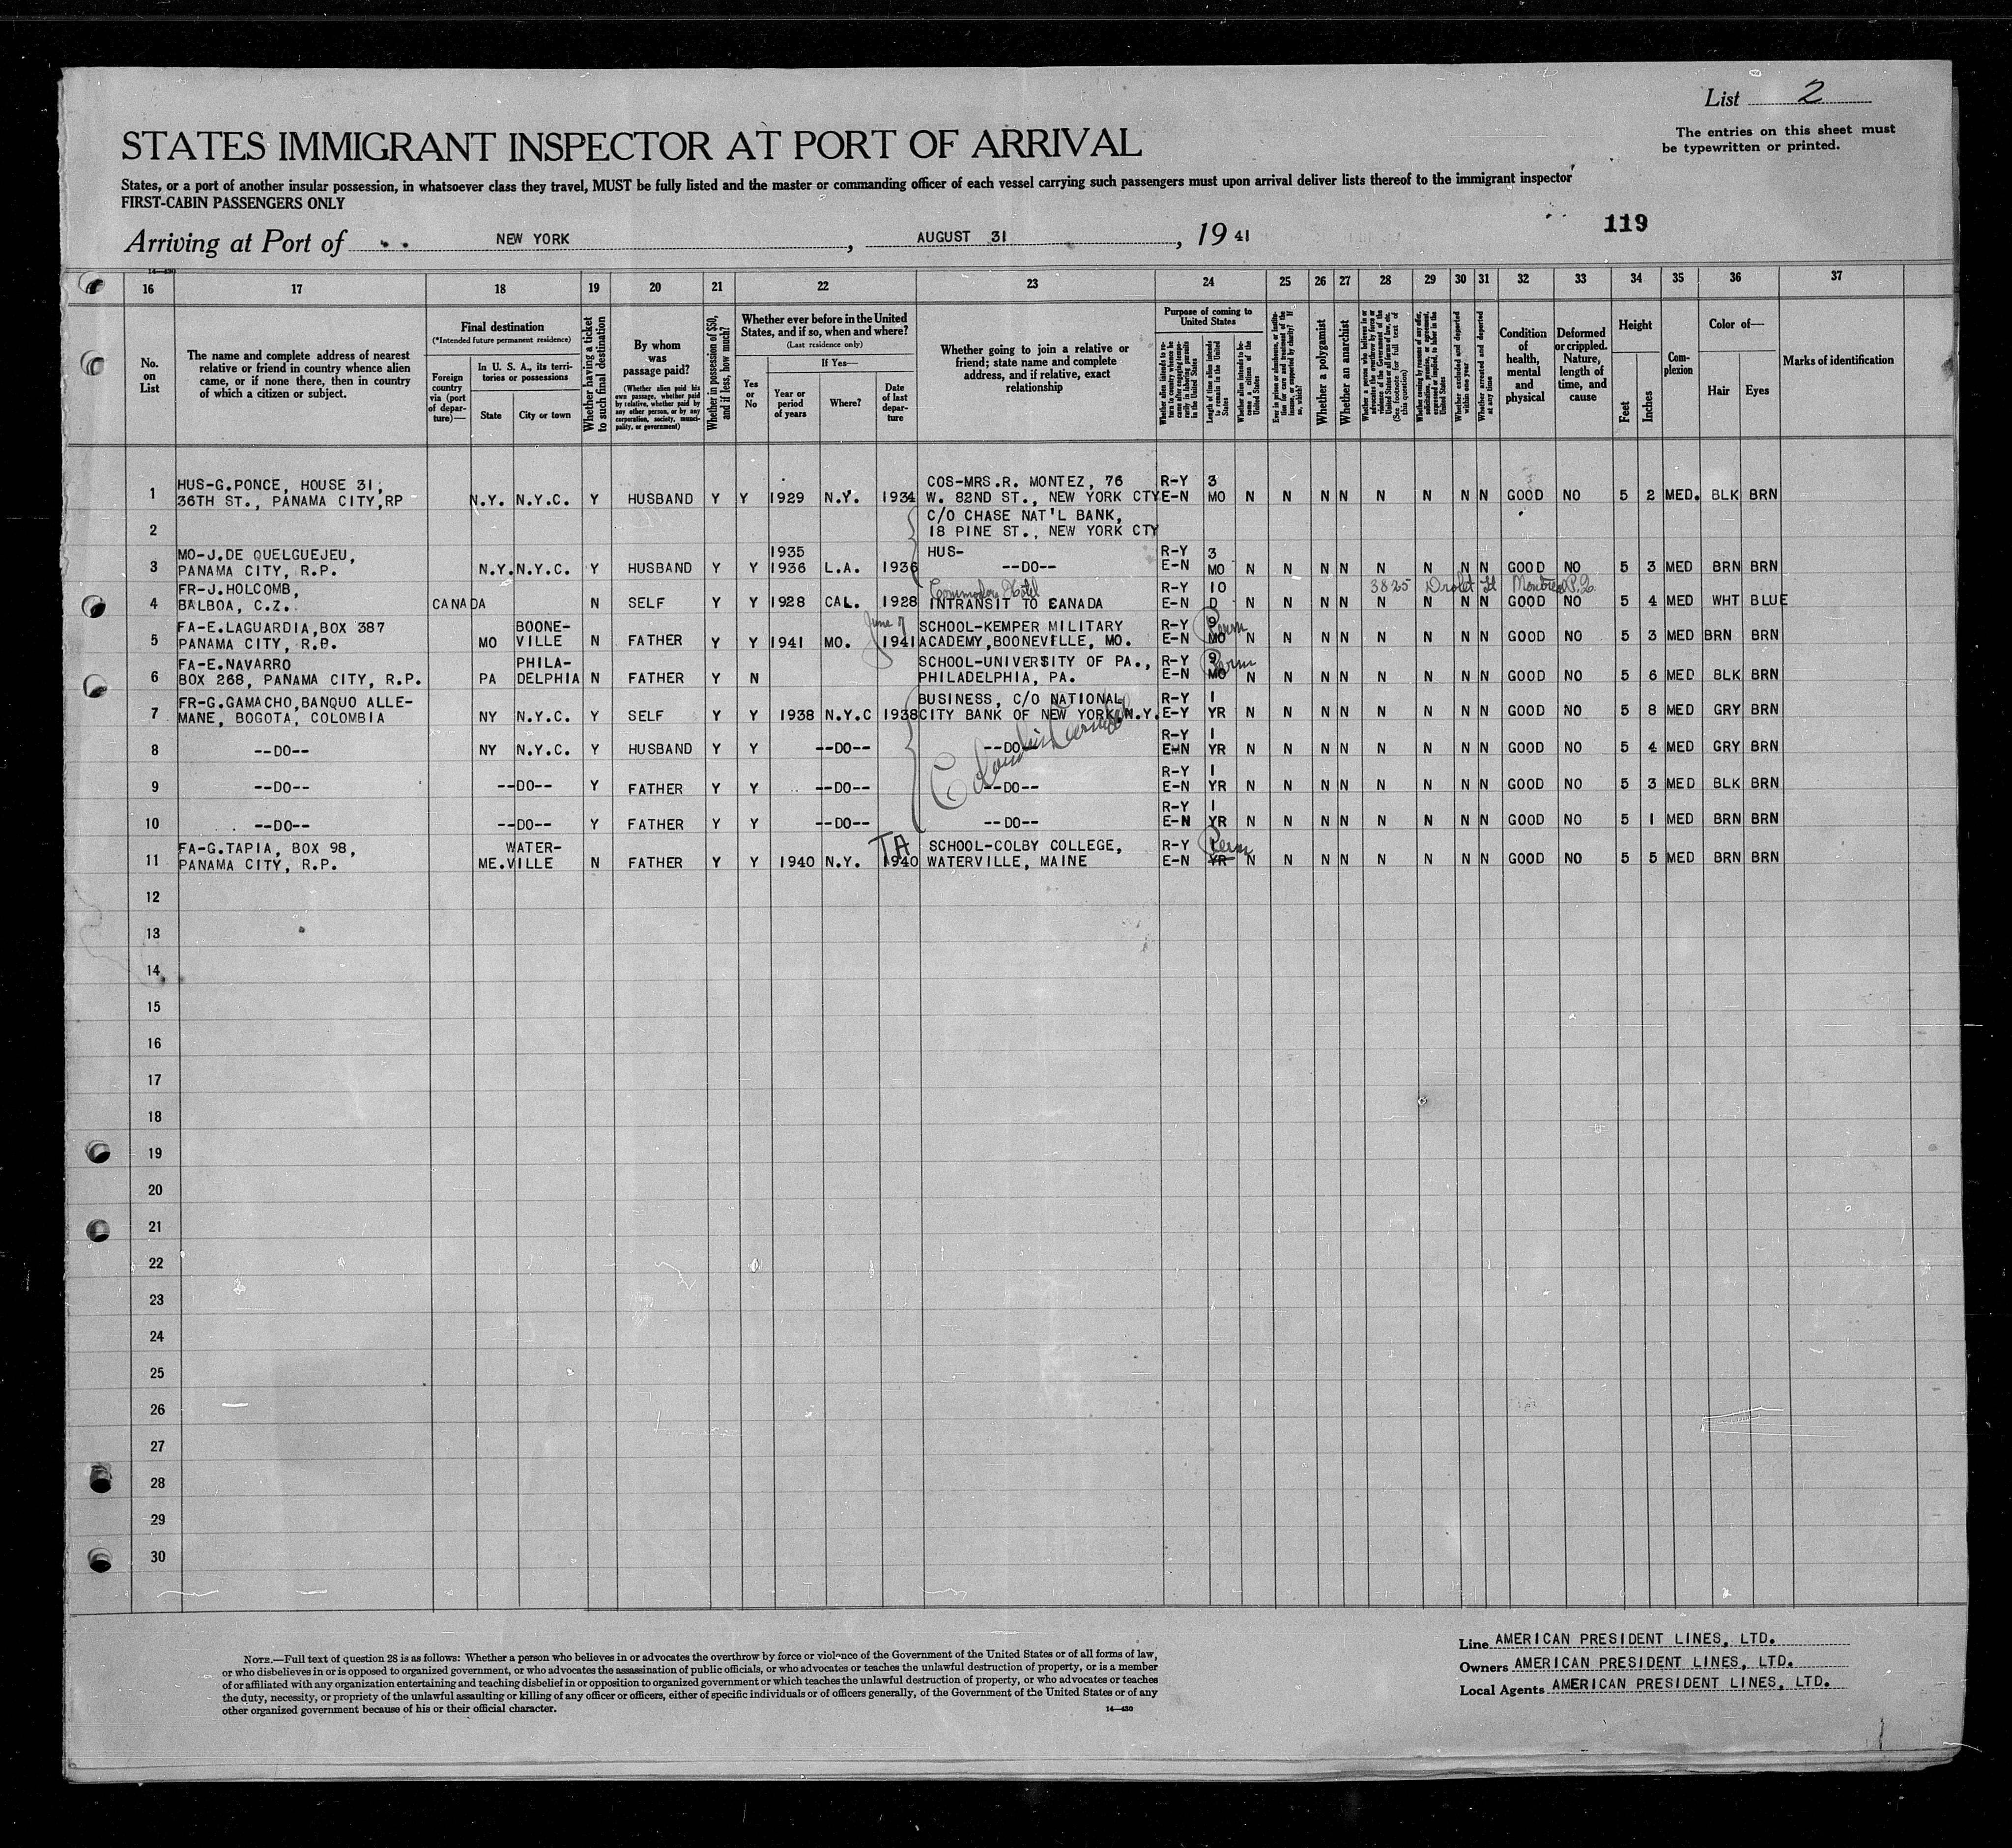 List 2
The entries on this sheet must
be typewritten or printed.
STATES IMMIGRANT INSPECTOR AT PORT OF ARRIVAL
States, or a port of another insular possession, in whatsoever class they travel, MUST be fully listed and the master or commanding officer of each vessel carrying such passengers must upon arrival deliver lists thereof to the immigrant inspector
FIRST-CABIN PASSENGERS ONLY
119
Arriving at Port of NEW YORK, AUGUST 31, 19 41
14—430
16 17 18 19 20 21 22 23 24 25 26 27 28 29 30 31 32 33 34 35 36 37
No.
on
List
The name and complete address of nearest
relative or friend in country whence alien
came, or if none there, then in country
of which a citizen or subject.
Final destination
(*Intended future permanent residence)
Foreign
country
via (port
of depar-
ture)—
In U. S. A., its terri-
tories or possessions
State
City or town
Whether having a ticket
to such final destination
By whom
was
passage paid?
(Whether alien paid his
own passage, whether paid
by relative, whether paid by
any other person, or by any
corporation, society, munici-
pality, or government)
Whether in possession of $50,
and if less, how much?
Whether ever before in the United
States, and if so, when and where?
(Last residence only)
Yes
or
No
If Yes—
Year or
period
of years
Where?
Date
of last
depar-
ture
Whether going to join a relative or
friend; state name and complete
address, and if relative, exact
relationship
Purpose of coming to
United States
Length of time alien intends
to remain in the United
States
Whether alien intends to be-
come a citizen of the
United States
Whether a polygamist
Whether an anarchist
Whether excluded and deported
within one year
Whether arrested and deported
at any time
Condition
of
health,
mental
and
physical
Deformed
or crippled.
Nature,
length of
time, and
cause
Height
Feet
Inches
Com-
plexion
Color of—
Hair
Eyes
Marks of identification
HUS-G.PONCE, HOUSE 31, COS-MRS.R. MONTEZ, 76 R-Y 3
1 36TH ST., PANAMA CITY,RP N.Y. N.Y.C. Y HUSBAND Y Y 1929 N.Y. 1934 W. 82ND ST., NEW YORK CTY E-N MO N N N N N N N N GOOD NO 5 2 MED. BLK BRN
C/O CHASE NAT'L BANK,
2 18 PINE ST., NEW YORK CTY
MO-J.DE QUELGUEJEU, 1935 HUS- R-Y 3
3 PANAMA CITY, R.P. N.Y. N.Y.C. Y HUSBAND Y Y 1936 L.A. 1936 --DO-- E-N MO N N N N N N N N GOOD NO 5 3 MED BRN BRN
FR-J.HOLCOMB, Commodore Hotel R-Y 10 3825 Drolet St Montreal P.Q.
4 BALBOA, C.Z. CANADA N SELF Y Y 1928 CAL. 1928 INTRANSIT TO CANADA E-N D N N N N N N N N GOOD NO 5 4 MED WHT BLUE
FA-E.LAGUARDIA,BOX 387 BOONE- June 7 SCHOOL-KEMPER MILITARY R-Y 9 Perm
5 PANAMA CITY, R.P. MO VILLE N FATHER Y Y 1941 MO. 1941 ACADEMY,BOONEVILLE, MO. E-N MO N N N N N N N N GOOD NO 5 3 MED BRN BRN
FA-E.NAVARRO PHILA- SCHOOL-UNIVERSITY OF PA., R-Y 9 Perm
6 BOX 268, PANAMA CITY, R.P. PA DELPHIA N FATHER Y N PHILADELPHIA, PA. E-N MO N N N N N N N N GOOD NO 5 6 MED BLK BRN
FR-G.GAMACHO,BANQUO ALLE- BUSINESS, C/O NATIONAL R-Y 1
7 MANE, BOGOTA, COLOMBIA NY N.Y.C. Y SELF Y Y 1938 N.Y.C 1938 CITY BANK OF NEW YORK,N.Y. E-Y YR N N N N N N N N GOOD NO 5 8 MED GRY BRN
R-Y 1
8 --DO-- NY N.Y.C. Y HUSBAND Y Y --DO-- --DO-- E-N YR N N N N N N N N GOOD NO 5 4 MED GRY BRN
R-Y 1
9 --DO-- --DO-- Y FATHER Y Y --DO-- --DO-- E-N YR N N N N N N N N GOOD NO 5 3 MED BLK BRN
R-Y 1
10 --DO-- --DO-- Y FATHER Y Y --DO-- --DO-- E-N YR N N N N N N N N GOOD NO 5 1 MED BRN BRN
FA-G.TAPIA, BOX 98, WATER- TA SCHOOL-COLBY COLLEGE, R-Y Perm
11 PANAMA CITY, R.P. ME. VILLE N FATHER Y Y 1940 N.Y. 1940 WATERVILLE, MAINE E-N YR N N N N N N N N GOOD NO 5 5 MED BRN BRN
12
13
14
15
16
17
18
19
20
21
22
23
24
25
26
27
28
29
30
NOTE.—Full text of question 28 is as follows: Whether a person who believes in or advocates the overthrow by force or violence of the Government of the United States or of all forms of law,
or who disbelieves in or is opposed to organized government, or who advocates the assassination of public officials, or who advocates or teaches the unlawful destruction of property, or is a member
of or affiliated with any organization entertaining and teaching disbelief in or opposition to organized government or which teaches the unlawful destruction of property, or who advocates or teaches
the duty, necessity, or propriety of the unlawful assaulting or killing of any officer or officers, either of specific individuals or of officers generally, of the Government of the United States or of any
other organized government because of his or their official character.
14—430
Line AMERICAN PRESIDENT LINES, LTD.
Owners AMERICAN PRESIDENT LINES, LTD.
Local Agents AMERICAN PRESIDENT LINES, LTD.